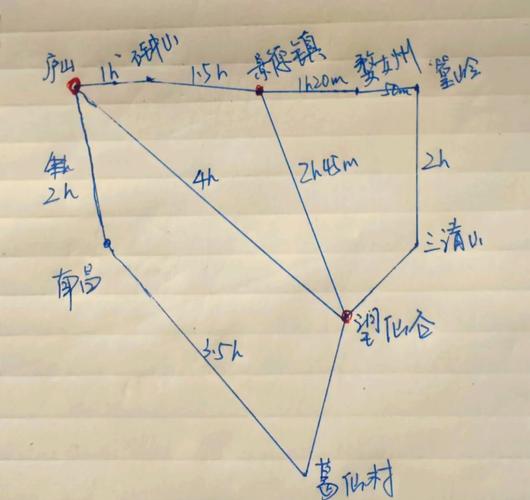 庐山
1h
石钟山
1.5h
景德镇
1h20m
婺女州
50m
篁岭
2h
4h
2h45m
2h
三清山
南昌
望仙谷
3.5h
葛仙村